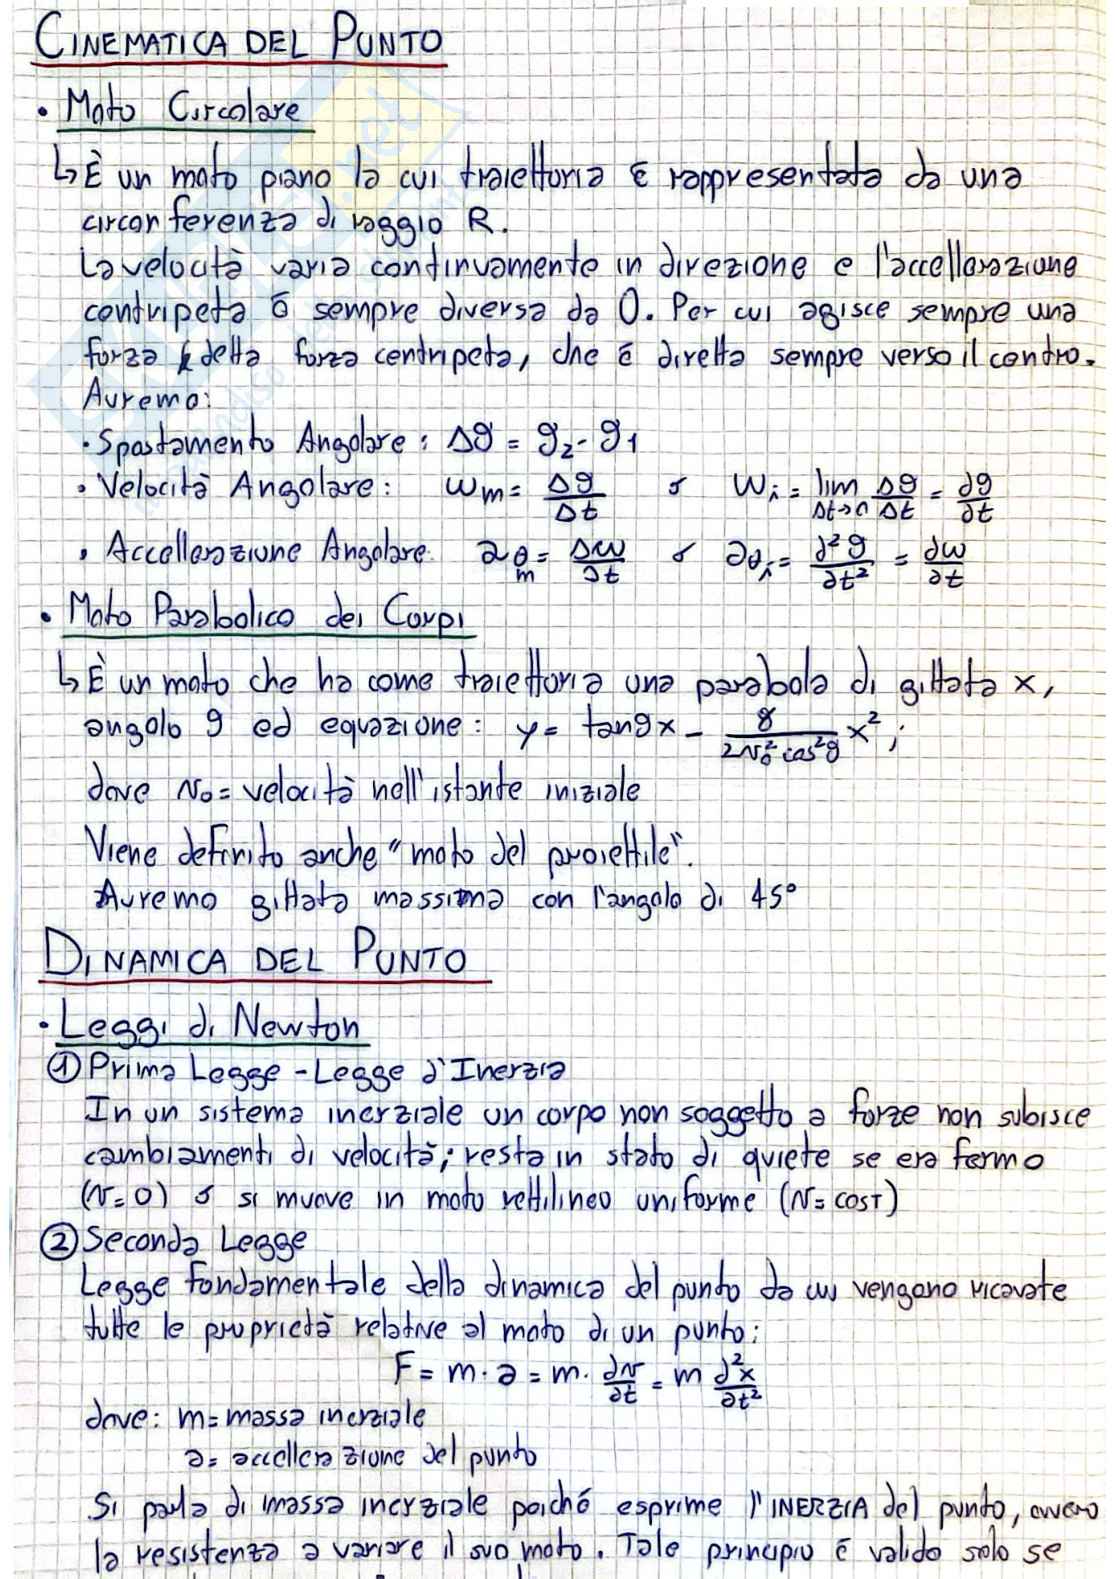 CINEMATICA DEL PUNTO
• Moto Circolare
↳ È un moto piano la cui traiettoria è rappresentata da una
circonferenza di raggio R.
La velocità varia continuamente in direzione e l'accellerazione
centripeta è sempre diversa da 0. Per cui agisce sempre una
forza detta forza centripeta, che è diretta sempre verso il centro.
Avremo:
• Spostamento Angolare: Δϑ = ϑ₂ - ϑ₁
• Velocità Angolare: ωm = Δϑ/Δt o ωi = lim Δt→0 Δϑ/Δt = ∂ϑ/∂t
• Accellerazione Angolare aθm = Δω/∂t o ∂θi = ∂²ϑ/∂t² = ∂ω/∂t
• Moto Parabolico dei Corpi
↳ È un moto che ha come traiettoria una parabola di gittata x,
angolo ϑ ed equazione: y = tanϑx - g/(2v₀²cos²ϑ) x²;
dove v₀ = velocità nell'istante iniziale
Viene definito anche "moto del proiettile".
Avremo gittata massima con l'angolo di 45°
DINAMICA DEL PUNTO
• Leggi di Newton
① Prima Legge - Legge d'Inerzia
In un sistema inerziale un corpo non soggetto a forze non subisce
cambiamenti di velocità; resta in stato di quiete se era fermo
(v=0) o si muove in moto rettilineo uniforme (v=cost)
② Seconda Legge
Legge fondamentale della dinamica del punto da cui vengono ricavate
tutte le proprietà relative al moto di un punto:
F = m·a = m·∂v/∂t = m ∂²x/∂t²
dove: m = massa inerziale
a = accellerazione del punto
Si parla di massa inerziale poiché esprime l'INERZIA del punto, ovvero
la resistenza a variare il suo moto. Tale principio è valido solo se